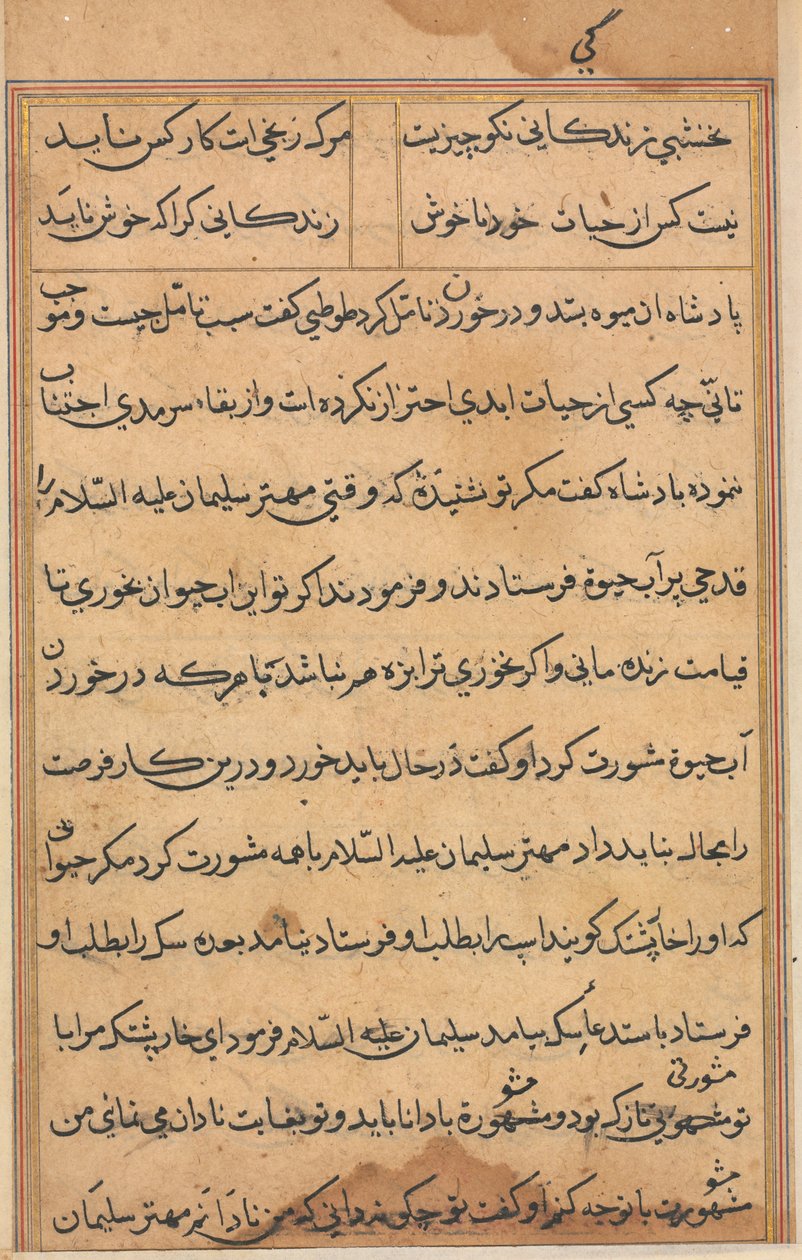 گي
نخشبي زندكاني نكو چيزيت
مرك زيخي ات كار كس نايد
نيست كس از حيات خود ناخوش
زندكاني كرا كه خوش نايد
پادشاه ان ميوه بستد و در خوردن تامّل كرد طوطي كفت سبب تامّل چيست و موجب
تانّي چه كسي از حيات ابدي احتراز نكرده است و از بقاء سرمدي اجتناب
ننموده پادشاه كفت مكر تو نشنيدۀ كه وقتي مهتر سليمان عليه السّلام را
قدحي پر آب حيوة فرستادند و فرمودند اكر تو اين اب حيوان بخوري تا
قيامت زنده ماني و اكر نخوري ترا بزه هم نباشد با هركه در خوردن
آب حيوة مشورت كرد او كفت در حال بايد خورد و درين كار فرصت
را مجال نبايد داد مهتر سليمان عليه السّلام با همه مشورت كرد مكر حيواني
كه او را خارپشتك كويند اسپ را بطلب او فرستاد نيامد بعده سك را بطلب او
فرستاد باستدعاء سك بيامد سليمان عليه السّلام فرمود اي خارپشتك مرا با
تو مشورتي نازك بود و مشورة با دانا بايد و تو بغايت نادان مي نمائي من
مشورت با تو چه كنم او كفت تو چكونه داني كه من نادانم مهتر سليمان